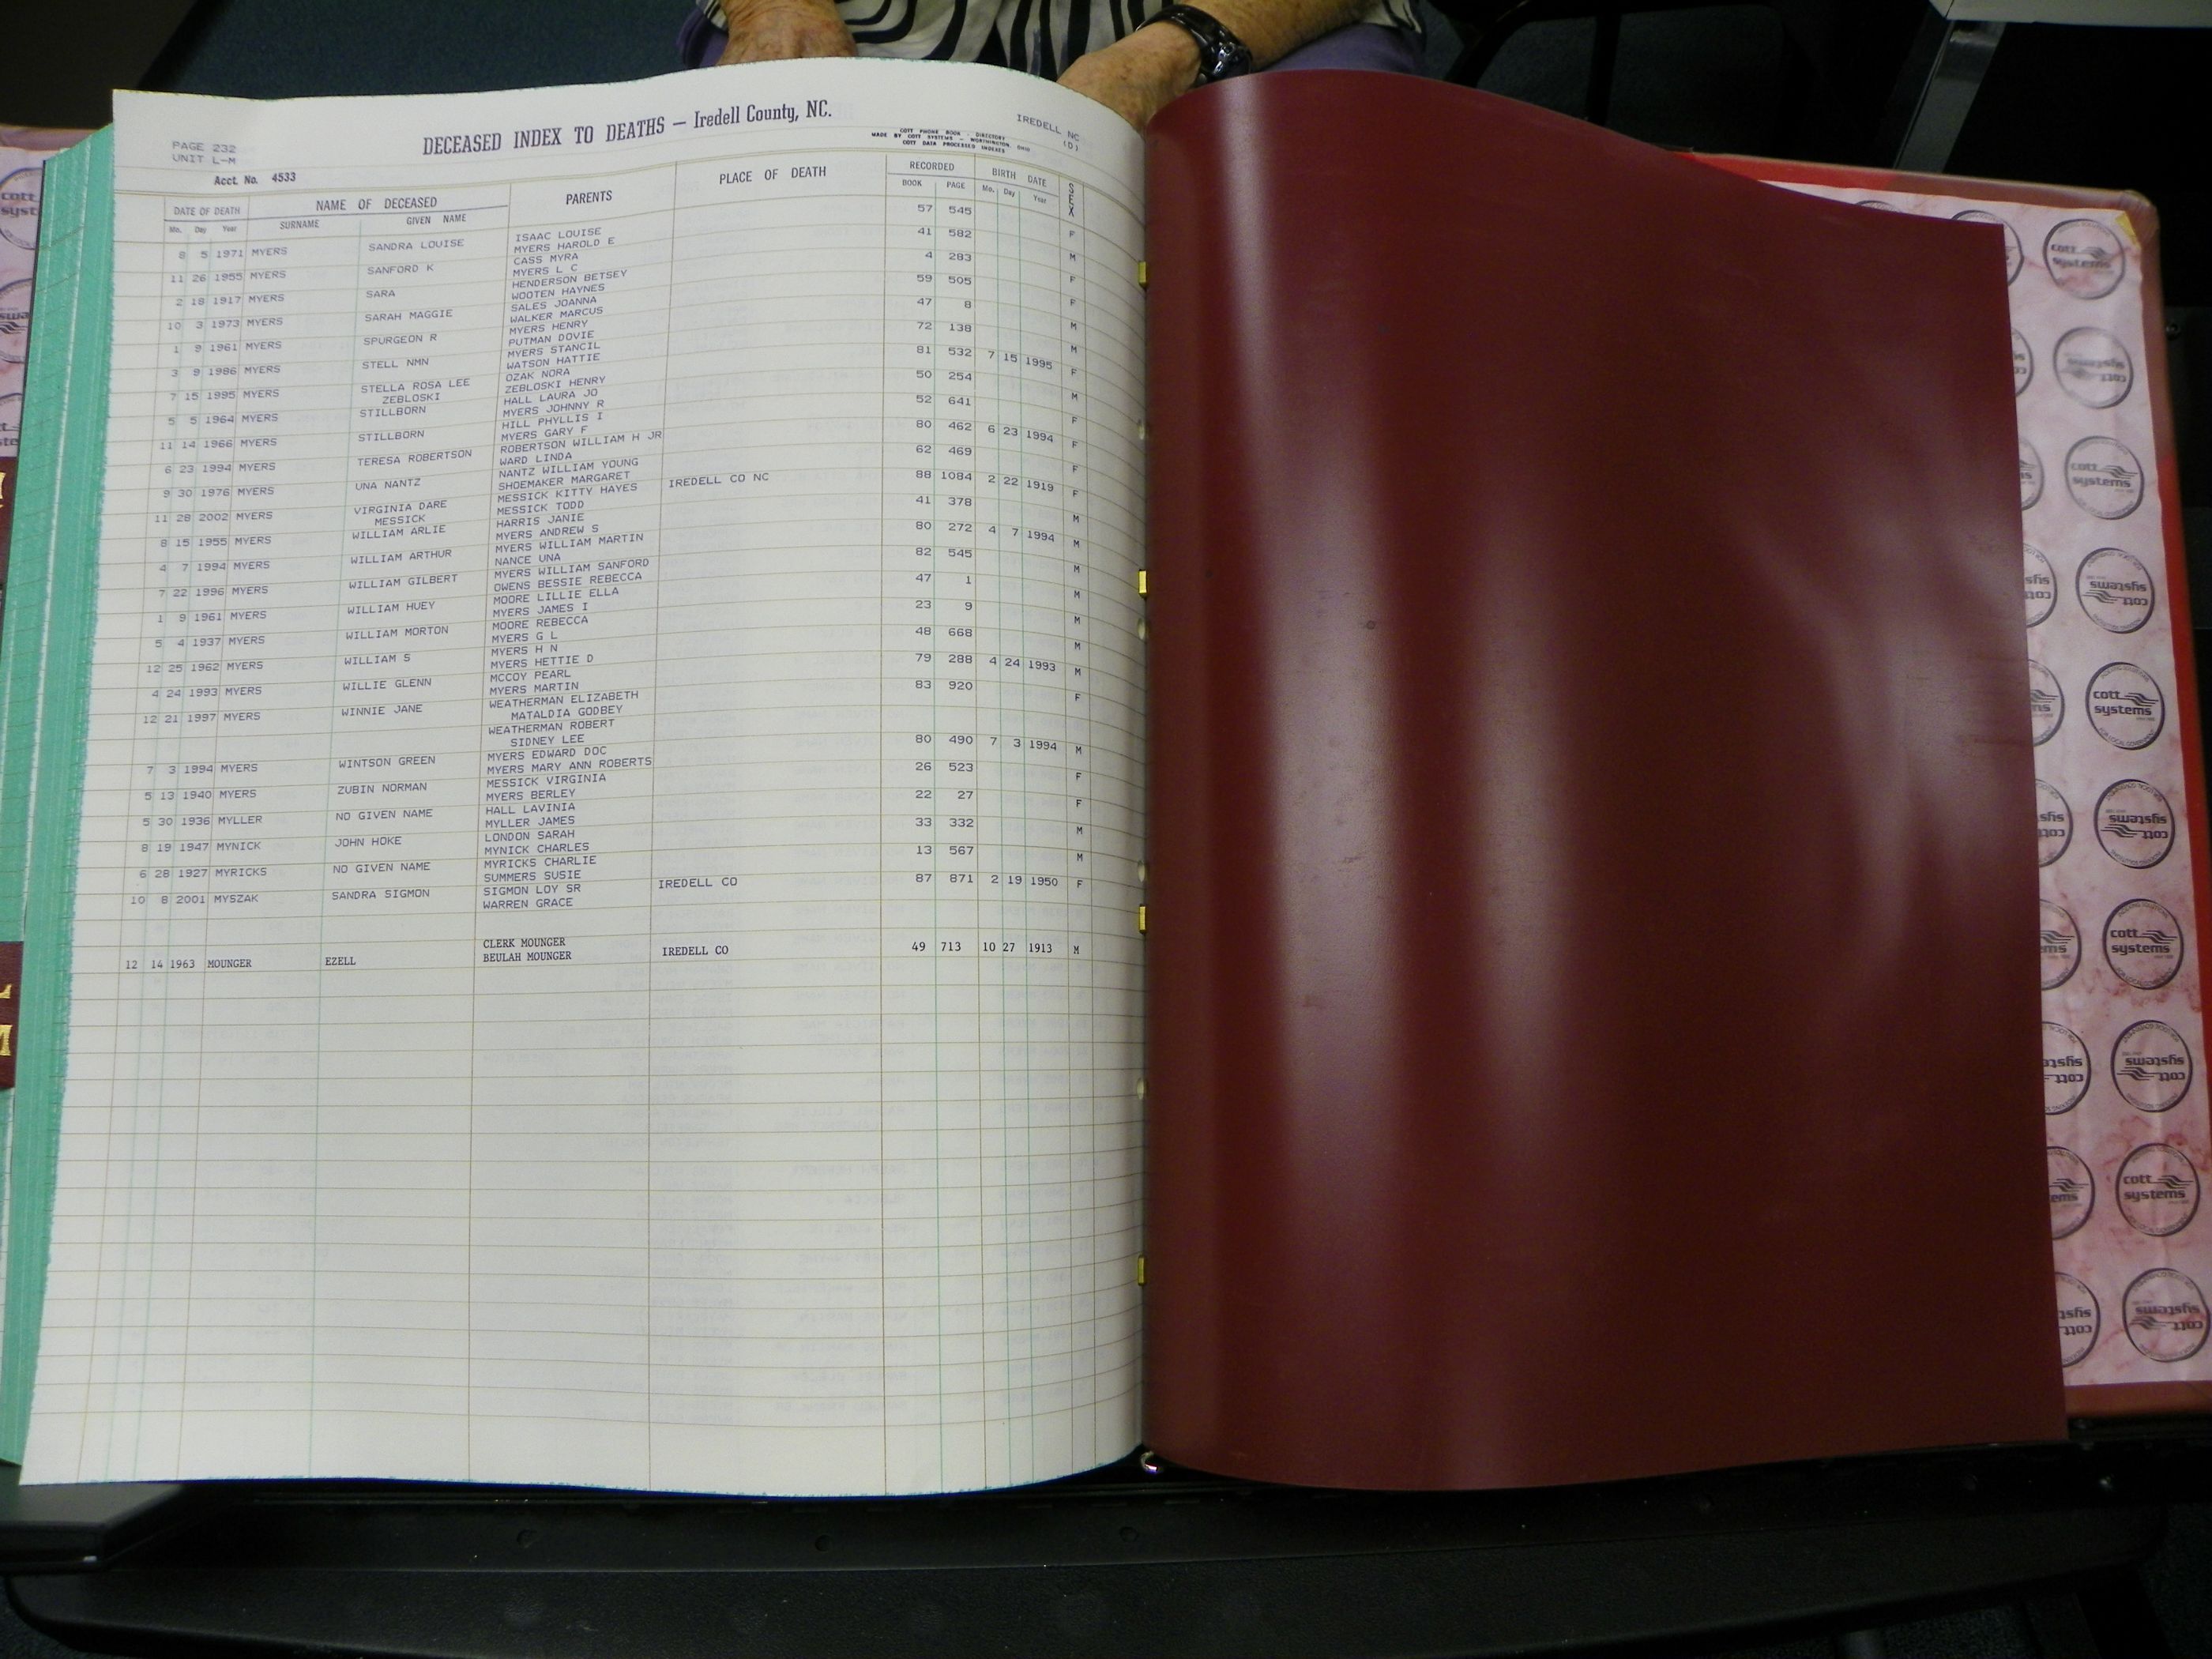 PAGE 232
UNIT L-M
DECEASED INDEX TO DEATHS — Iredell County, NC.
COTT PHONE BOOK - DIRECTORY
MADE BY COTT SYSTEMS - WORTHINGTON, OHIO
COTT DATA PROCESSED INDEXES
IREDELL NC
(D)
Acct. No. 4533
DATE OF DEATH NAME OF DECEASED PARENTS PLACE OF DEATH RECORDED BIRTH DATE SEX
Mo. Day Year SURNAME GIVEN NAME BOOK PAGE Mo. Day Year
8 5 1971 MYERS SANDRA LOUISE ISAAC LOUISE 57 545 F
MYERS HAROLD E
11 26 1955 MYERS SANFORD K CASS MYRA 41 582 M
MYERS L C
2 18 1917 MYERS SARA HENDERSON BETSEY 4 283 F
WOOTEN HAYNES
10 3 1973 MYERS SARAH MAGGIE SALES JOANNA 59 505 F
WALKER MARCUS
1 9 1961 MYERS SPURGEON R MYERS HENRY 47 8 M
PUTMAN DOVIE
3 9 1986 MYERS STELL NMN MYERS STANCIL 72 138 M
WATSON HATTIE
7 15 1995 MYERS STELLA ROSA LEE OZAK NORA 81 532 7 15 1995 F
ZEBLOSKI ZEBLOSKI HENRY
5 5 1964 MYERS STILLBORN HALL LAURA JO 50 254 M
MYERS JOHNNY R
11 14 1966 MYERS STILLBORN HILL PHYLLIS I 52 641 F
MYERS GARY F
6 23 1994 MYERS TERESA ROBERTSON ROBERTSON WILLIAM H JR 80 462 6 23 1994 F
WARD LINDA
9 30 1976 MYERS UNA NANTZ NANTZ WILLIAM YOUNG 62 469 F
SHOEMAKER MARGARET
11 28 2002 MYERS VIRGINIA DARE MESSICK KITTY HAYES IREDELL CO NC 88 1084 2 22 1919 F
MESSICK MESSICK TODD
8 15 1955 MYERS WILLIAM ARLIE HARRIS JANIE 41 378 M
MYERS ANDREW S
4 7 1994 MYERS WILLIAM ARTHUR MYERS WILLIAM MARTIN 80 272 4 7 1994 M
NANCE UNA
7 22 1996 MYERS WILLIAM GILBERT MYERS WILLIAM SANFORD 82 545 M
OWENS BESSIE REBECCA
1 9 1961 MYERS WILLIAM HUEY MOORE LILLIE ELLA 47 1 M
MYERS JAMES I
5 4 1937 MYERS WILLIAM MORTON MOORE REBECCA 23 9 M
MYERS G L
12 25 1962 MYERS WILLIAM S MYERS H N 48 668 M
MYERS HETTIE D
4 24 1993 MYERS WILLIE GLENN MCCOY PEARL 79 288 4 24 1993 M
MYERS MARTIN
12 21 1997 MYERS WINNIE JANE WEATHERMAN ELIZABETH 83 920 F
MATALDIA GODBEY
WEATHERMAN ROBERT
SIDNEY LEE
7 3 1994 MYERS WINTSON GREEN MYERS EDWARD DOC 80 490 7 3 1994 M
MYERS MARY ANN ROBERTS
5 13 1940 MYERS ZUBIN NORMAN MESSICK VIRGINIA 26 523 F
MYERS BERLEY
5 30 1936 MYLLER NO GIVEN NAME HALL LAVINIA 22 27 F
MYLLER JAMES
8 19 1947 MYNICK JOHN HOKE LONDON SARAH 33 332 M
MYNICK CHARLES
6 28 1927 MYRICKS NO GIVEN NAME MYRICKS CHARLIE 13 567 M
SUMMERS SUSIE
10 8 2001 MYSZAK SANDRA SIGMON SIGMON LOY SR IREDELL CO 87 871 2 19 1950 F
WARREN GRACE
CLERK MOUNGER
12 14 1963 MOUNGER EZELL BEULAH MOUNGER IREDELL CO 49 713 10 27 1913 M
cott
systems